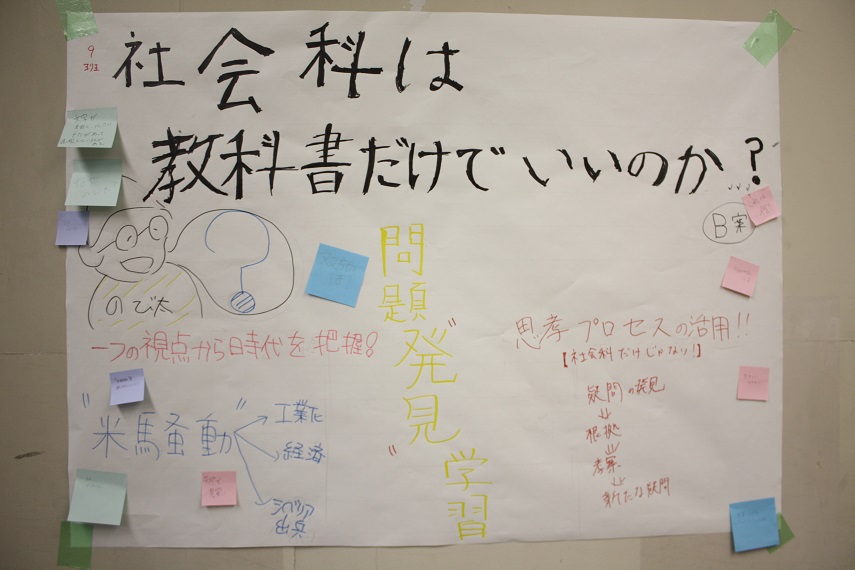 9
班
社会科は
教科書だけでいいのか?
B案
のび太
問題
"発見"
学習
一つの視点から時代を把握!
"米馬騒動"
工業化
経済
シベリア
出兵
思考プロセスの活用!!
【社会科だけじゃない!】
疑問の発見
根拠
考察
新たな疑問